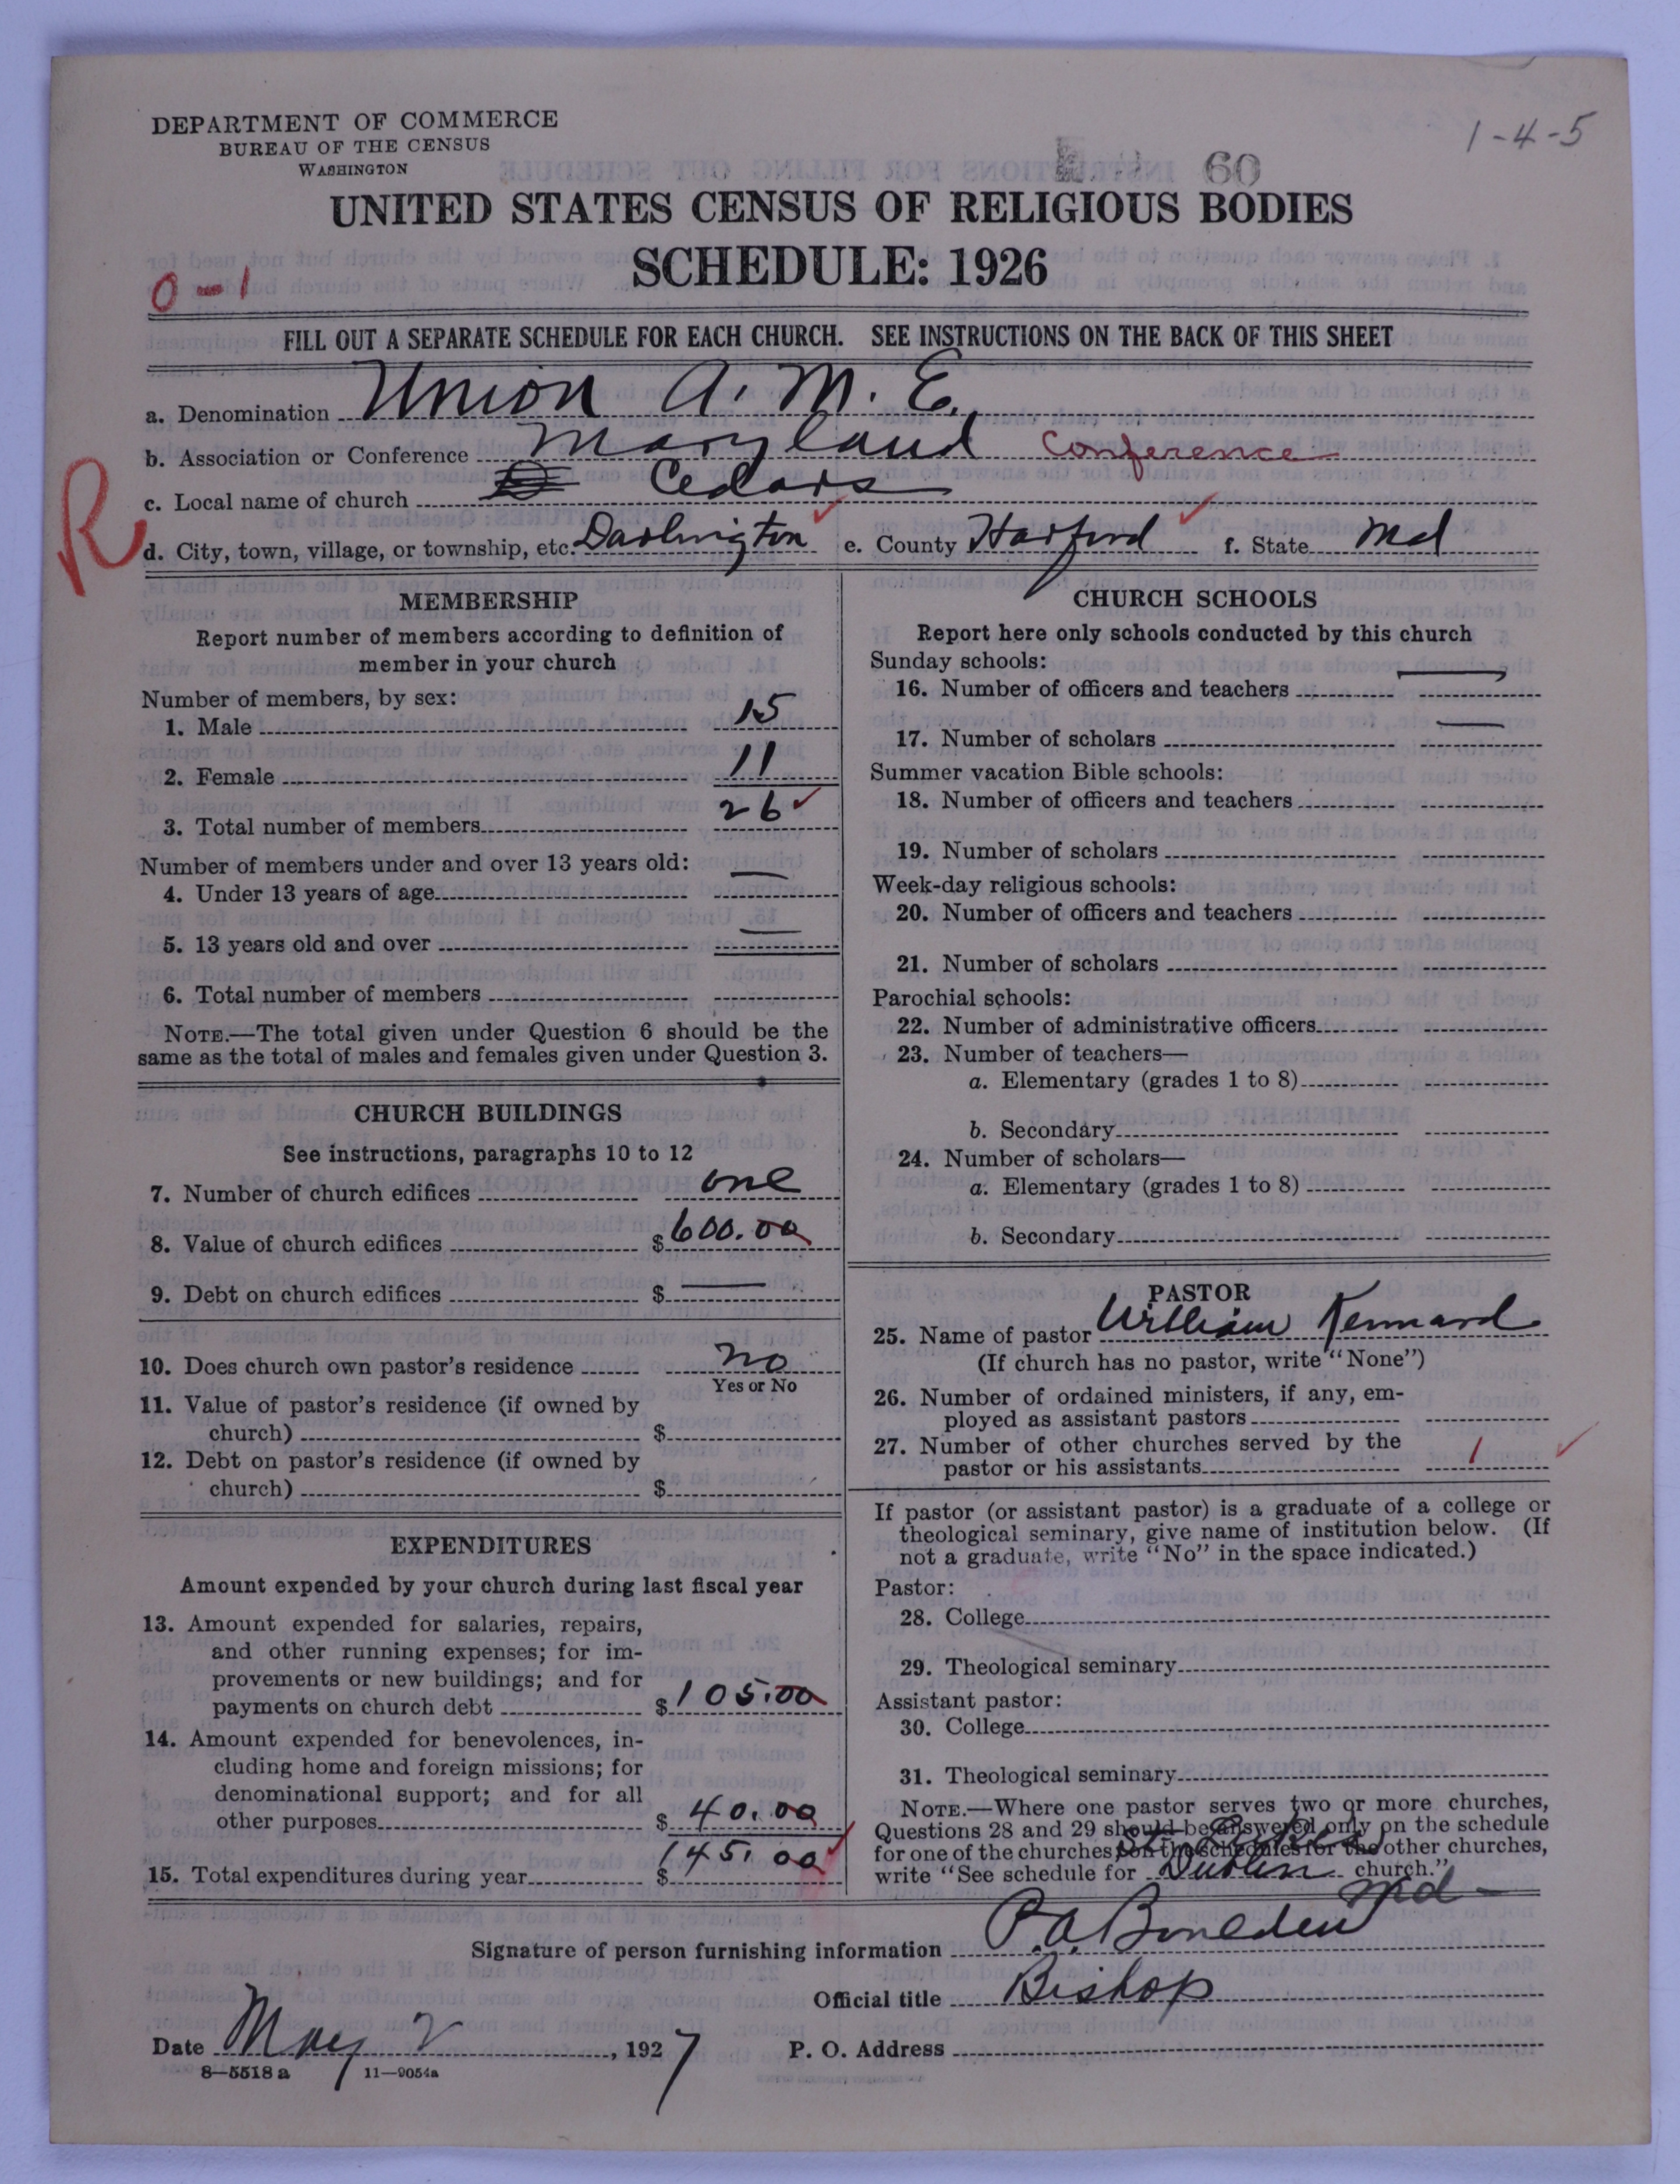 DEPARTMENT OF COMMERCE
BUREAU OF THE CENSUS
WASHINGTON
1-4-5
60
UNITED STATES CENSUS OF RELIGIOUS BODIES
SCHEDULE: 1926
0-1
FILL OUT A SEPARATE SCHEDULE FOR EACH CHURCH. SEE INSTRUCTIONS ON THE BACK OF THIS SHEET
a. Denomination Union A. M. E.
b. Association or Conference Maryland Conference
c. Local name of church Cedars
R
d. City, town, village, or township, etc. Darlington e. County Harford f. State Md
MEMBERSHIP
Report number of members according to definition of
member in your church
Number of members, by sex:
1. Male 15
2. Female 11
3. Total number of members 26
Number of members under and over 13 years old:
4. Under 13 years of age —
5. 13 years old and over —
6. Total number of members
NOTE.—The total given under Question 6 should be the
same as the total of males and females given under Question 3.
CHURCH BUILDINGS
See instructions, paragraphs 10 to 12
7. Number of church edifices one
8. Value of church edifices $600.00
9. Debt on church edifices $ —
10. Does church own pastor's residence no
Yes or No
11. Value of pastor's residence (if owned by
church) $
12. Debt on pastor's residence (if owned by
church) $
EXPENDITURES
Amount expended by your church during last fiscal year
13. Amount expended for salaries, repairs,
and other running expenses; for im-
provements or new buildings; and for
payments on church debt $105.00
14. Amount expended for benevolences, in-
cluding home and foreign missions; for
denominational support; and for all
other purposes $40.00
15. Total expenditures during year $145.00
CHURCH SCHOOLS
Report here only schools conducted by this church
Sunday schools:
16. Number of officers and teachers —
17. Number of scholars —
Summer vacation Bible schools:
18. Number of officers and teachers
19. Number of scholars
Week-day religious schools:
20. Number of officers and teachers
21. Number of scholars
Parochial schools:
22. Number of administrative officers
23. Number of teachers—
a. Elementary (grades 1 to 8)
b. Secondary
24. Number of scholars—
a. Elementary (grades 1 to 8)
b. Secondary
PASTOR
25. Name of pastor William Kennard
(If church has no pastor, write "None")
26. Number of ordained ministers, if any, em-
ployed as assistant pastors
27. Number of other churches served by the
pastor or his assistants 1
If pastor (or assistant pastor) is a graduate of a college or
theological seminary, give name of institution below. (If
not a graduate, write "No" in the space indicated.)
Pastor:
28. College
29. Theological seminary
Assistant pastor:
30. College
31. Theological seminary
NOTE.—Where one pastor serves two or more churches,
Questions 28 and 29 should be answered only on the schedule
for one of the churches; on the schedules for the other churches,
write "See schedule for St. Dublin church."
Md
Signature of person furnishing information P.A.
Official title Bishop
Date May 2, 1927 P. O. Address
8—5518 a 11—9054a